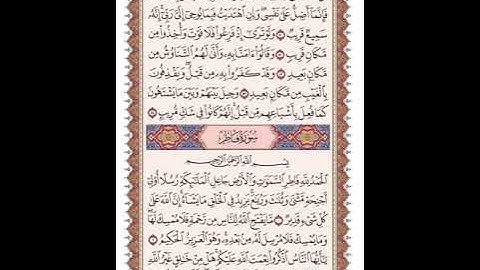 فَإِنَّمَا أَضِلُّ عَلَىٰ نَفْسِي وَإِنِ اهْتَدَيْتُ فَبِمَا يُوحِي إِلَيَّ رَبِّي إِنَّهُ
سَمِيعٌ قَرِيبٌ ۝ وَلَوْ تَرَىٰ إِذْ فَزِعُوا فَلَا فَوْتَ وَأُخِذُوا مِن
مَّكَانٍ قَرِيبٍ ۝ وَقَالُوا آمَنَّا بِهِ وَأَنَّىٰ لَهُمُ التَّنَاوُشُ مِن
مَّكَانٍ بَعِيدٍ ۝ وَقَدْ كَفَرُوا بِهِ مِن قَبْلُ وَيَقْذِفُونَ
بِالْغَيْبِ مِن مَّكَانٍ بَعِيدٍ ۝ وَحِيلَ بَيْنَهُمْ وَبَيْنَ مَا يَشْتَهُونَ
كَمَا فُعِلَ بِأَشْيَاعِهِم مِّن قَبْلُ إِنَّهُمْ كَانُوا فِي شَكٍّ مُّرِيبٍ ۝
سُورَةُ فَاطِرٍ
بِسْمِ اللَّهِ الرَّحْمَٰنِ الرَّحِيمِ
الْحَمْدُ لِلَّهِ فَاطِرِ السَّمَاوَاتِ وَالْأَرْضِ جَاعِلِ الْمَلَائِكَةِ رُسُلًا أُولِي
أَجْنِحَةٍ مَّثْنَىٰ وَثُلَاثَ وَرُبَاعَ يَزِيدُ فِي الْخَلْقِ مَا يَشَاءُ إِنَّ اللَّهَ عَلَىٰ
كُلِّ شَيْءٍ قَدِيرٌ ۝ مَّا يَفْتَحِ اللَّهُ لِلنَّاسِ مِن رَّحْمَةٍ فَلَا مُمْسِكَ لَهَا
وَمَا يُمْسِكْ فَلَا مُرْسِلَ لَهُ مِن بَعْدِهِ وَهُوَ الْعَزِيزُ الْحَكِيمُ ۝
يَا أَيُّهَا النَّاسُ اذْكُرُوا نِعْمَتَ اللَّهِ عَلَيْكُمْ هَلْ مِنْ خَالِقٍ غَيْرُ اللَّهِ